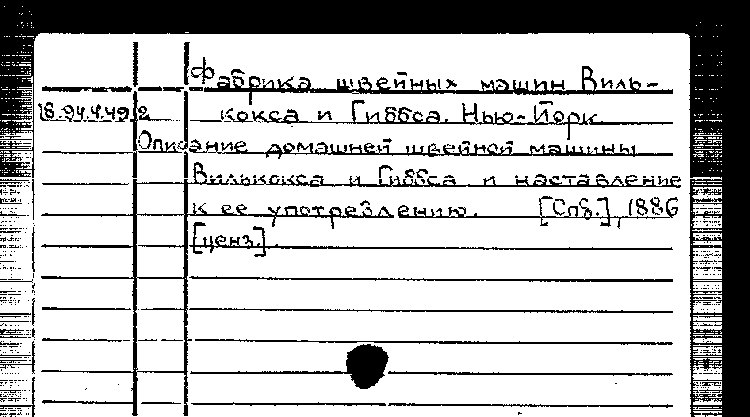 Фабрика швейных машин Виль-
18.94.4.49 2 кокса и Гиббса. Нью-Йорк
Описание домашней швейной машины
Вилькокса и Гиббса и наставление
к ее употреблению. [Спб.], 1886
[ценз.].